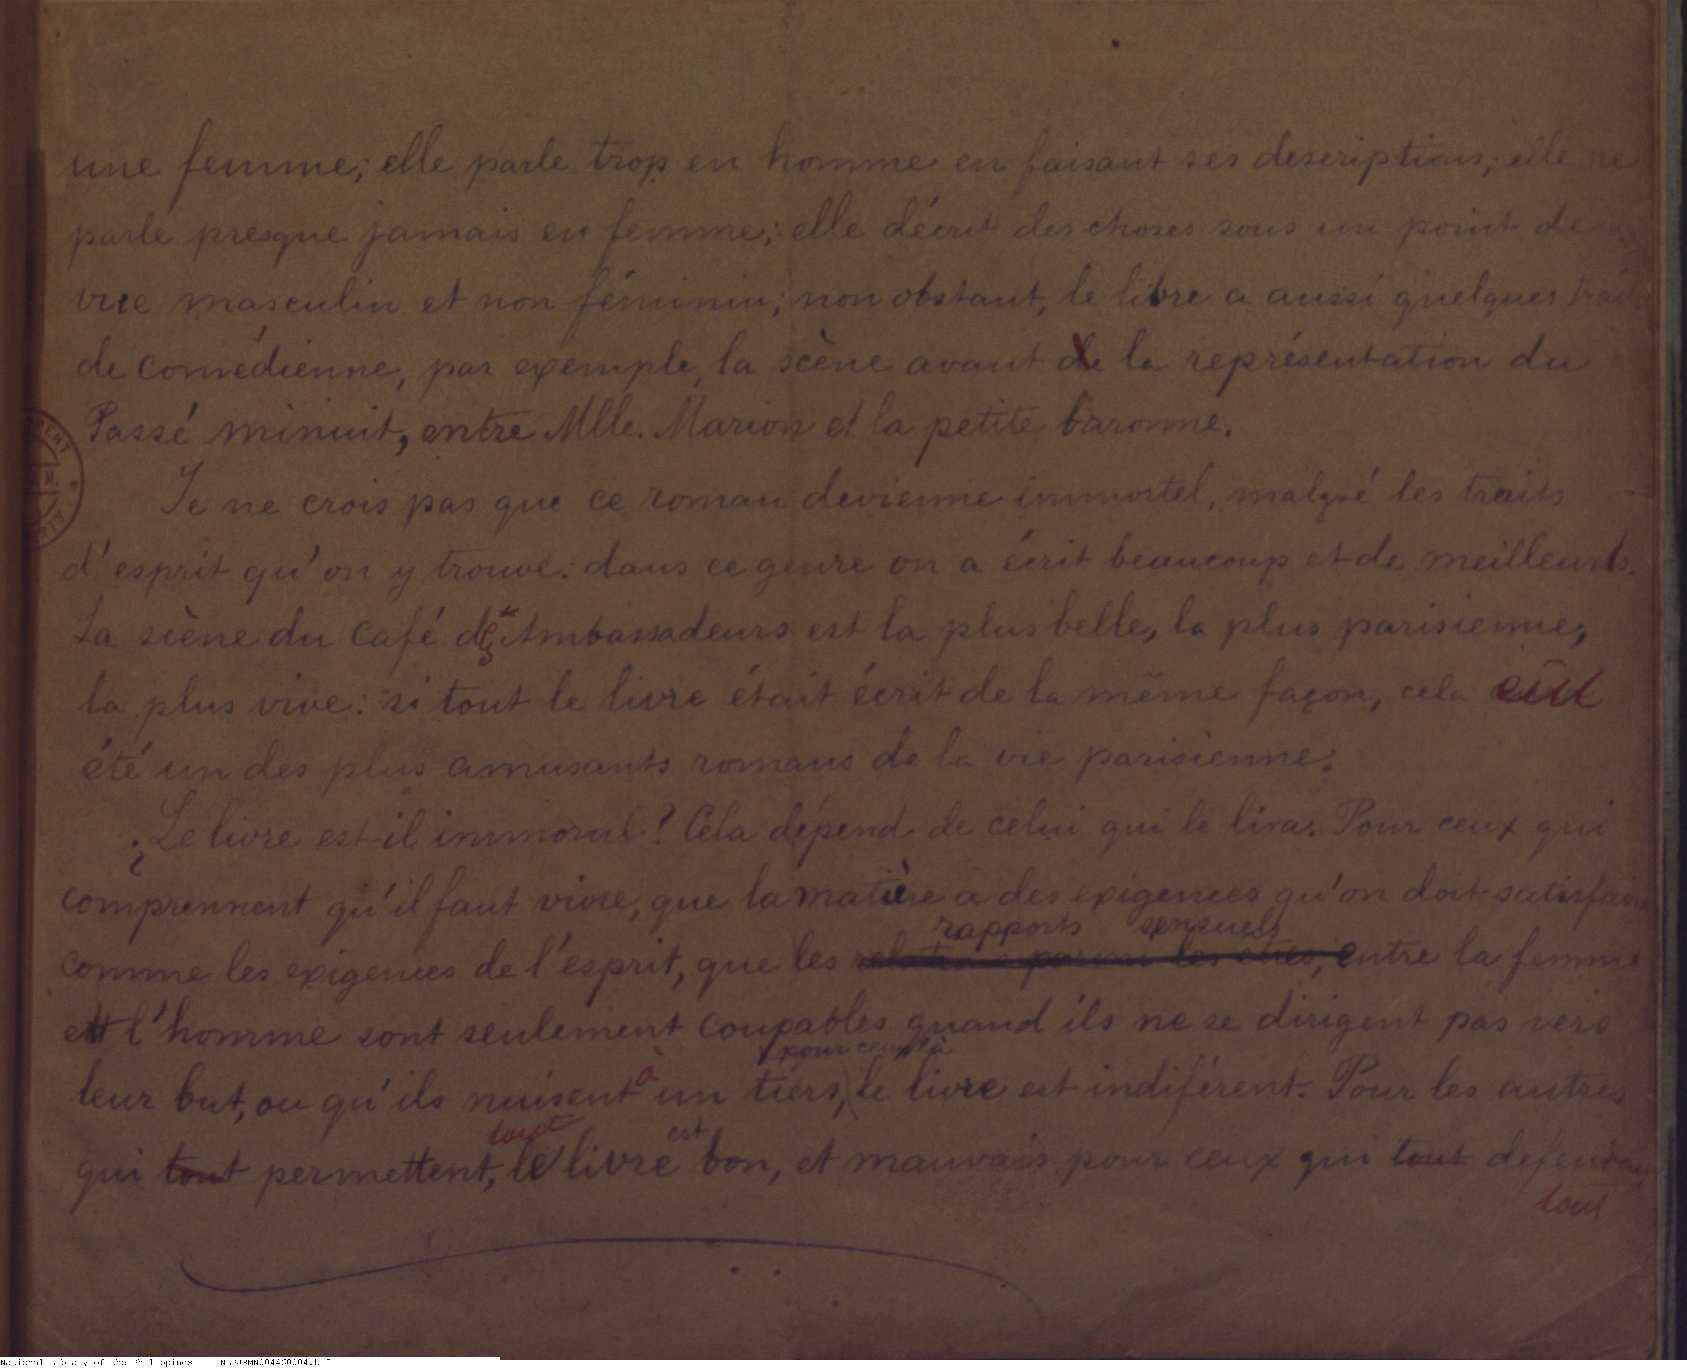 une femme; elle parle trop en homme en faisant ses descriptions; elle ne
parle presque jamais en femme; elle décrit des choses sous un point de
vue masculin et non féminin; non obstant, le libre a aussi quelques traits
de comédienne, par exemple, la scène avant de la représentation du
Passé minuit, entre Mlle. Marion et la petite baronne.
Je ne crois pas que ce roman devienne immortel, malgré les traits
d'esprit qu'on y trouve: dans ce genre on a écrit beaucoup et de meilleurs.
La scène du café des Ambassadeurs est la plus belle, la plus parisienne,
la plus vive: si tout le livre était écrit de la même façon, cela eût
été un des plus amusants romans de la vie parisienne.
¿Le livre est-il immoral? Cela dépend de celui qui le lira. Pour ceux qui
comprennent qu'il faut vivre, que la matière a des exigences qu'on doit satisfaire
rapports sensuels
comme les exigences de l'ésprit, que les relations parmi les êtres, entre la femme
et l'homme sont seulement coupables quand ils ne se dirigent pas vers
pour ceux-là
leur but, ou qu'ils nuisent à un tiers, le livre est indiférent. Pour les autres
tout est
qui tout permettent, le livre bon, et mauvais pour ceux qui tout defendent
tout
National Library of the Philippines